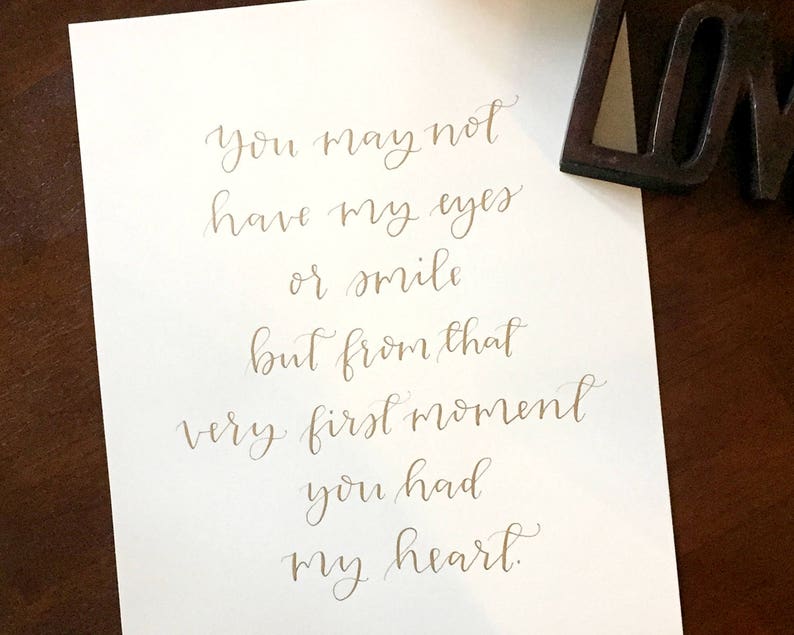 You may not
have my eyes
or smile
but from that
very first moment
you had
my heart.
LOV